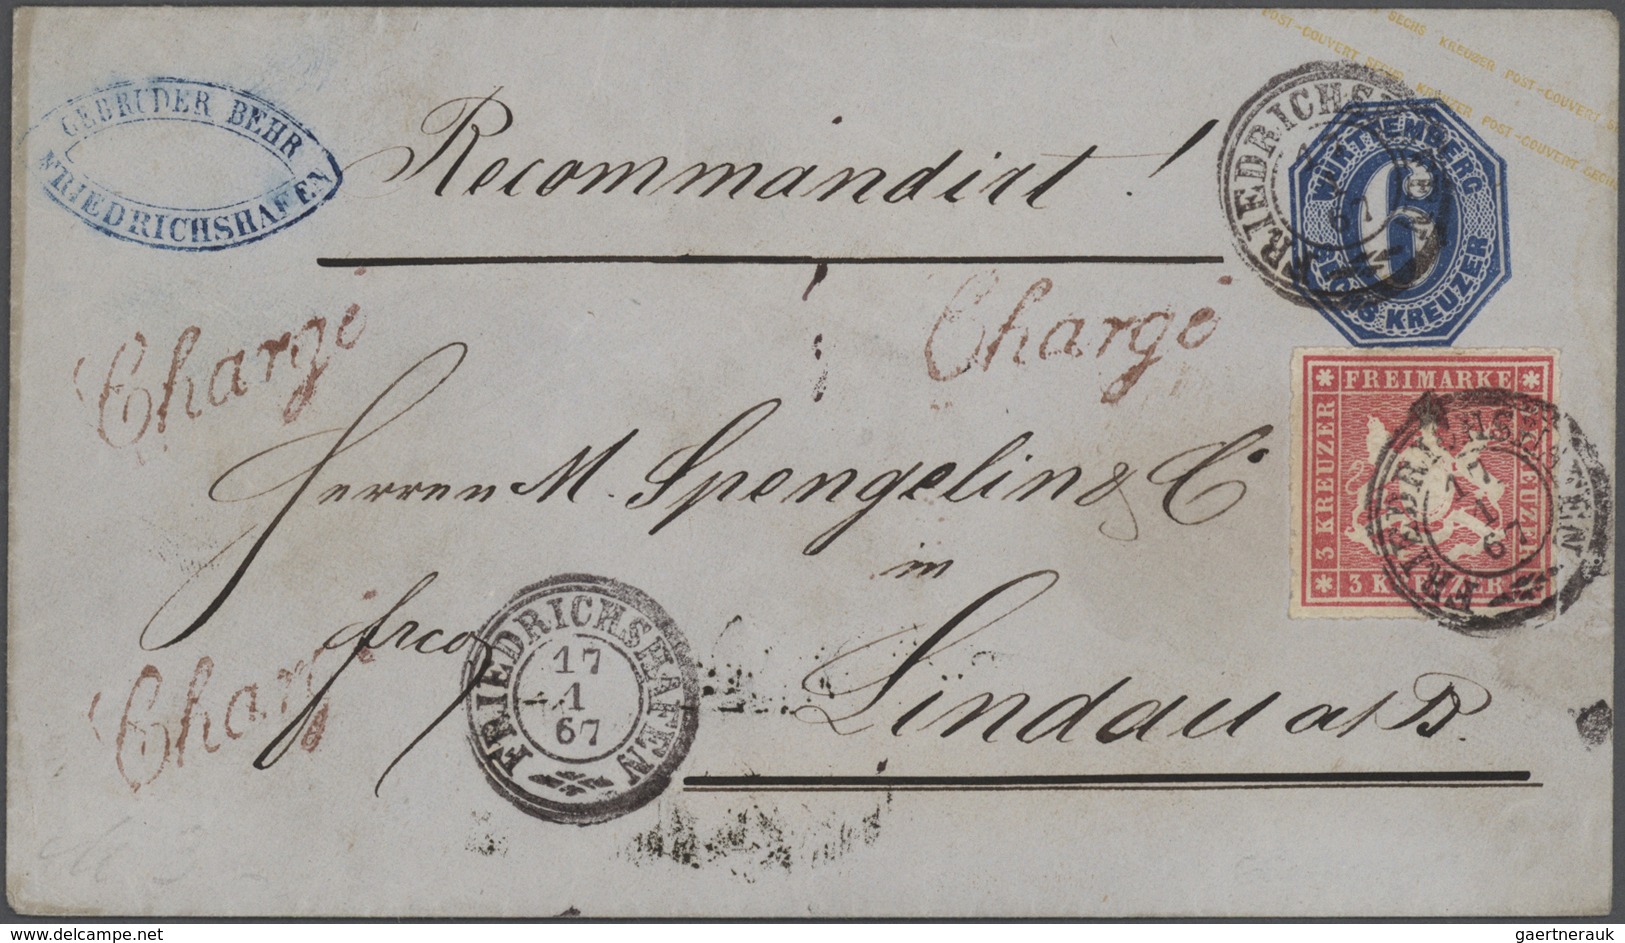 SECHS KREUZER POST-COUVERT
POST-COUVERT SECHS KREUZER POST-COUVERT SECHS
KREUZER POST-COUVERT SECHS
GEBRÜDER BEHR
FRIEDRICHSHAFEN
Recommandirt !
FRIEDRICHSHAFEN
17
1
67
WÜRTTEMBERG
6
SECHS KREUZER
Chargé
Chargé
FREIMARKE
3 KREUZER
3 KREUZER
3 KREUZER
FRIEDRICHSHAFEN
17
1
67
Herren M. Spengelin & Co
in
frco
Lindau a/B.
Chargé
FRIEDRICHSHAFEN
17
1
67
www.delcampe.net
gaertnerauk